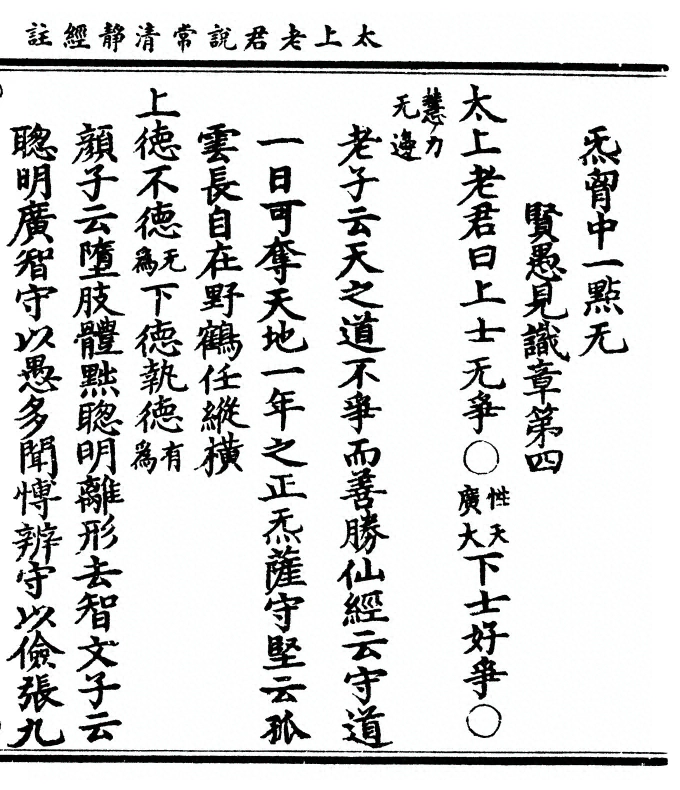 太上老君說常清靜經註
炁胷中一點无
賢愚見識章第四
太上老君曰上士无爭○性天廣大下士好爭○
慧力无邊
老子云天之道不爭而善勝仙經云守道
一日可奪天地一年之正炁薩守堅云孤
雲長自在野鶴任縱橫
上德不德无爲下德執德有爲
顏子云墮肢體黜聰明離形去智文子云
聰明廣智守以愚多聞愽辨守以儉張九